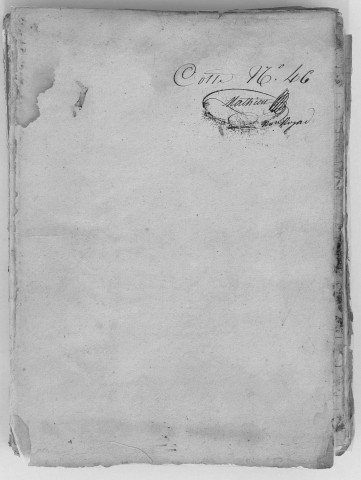 Cotte N.° 46
Mathieu